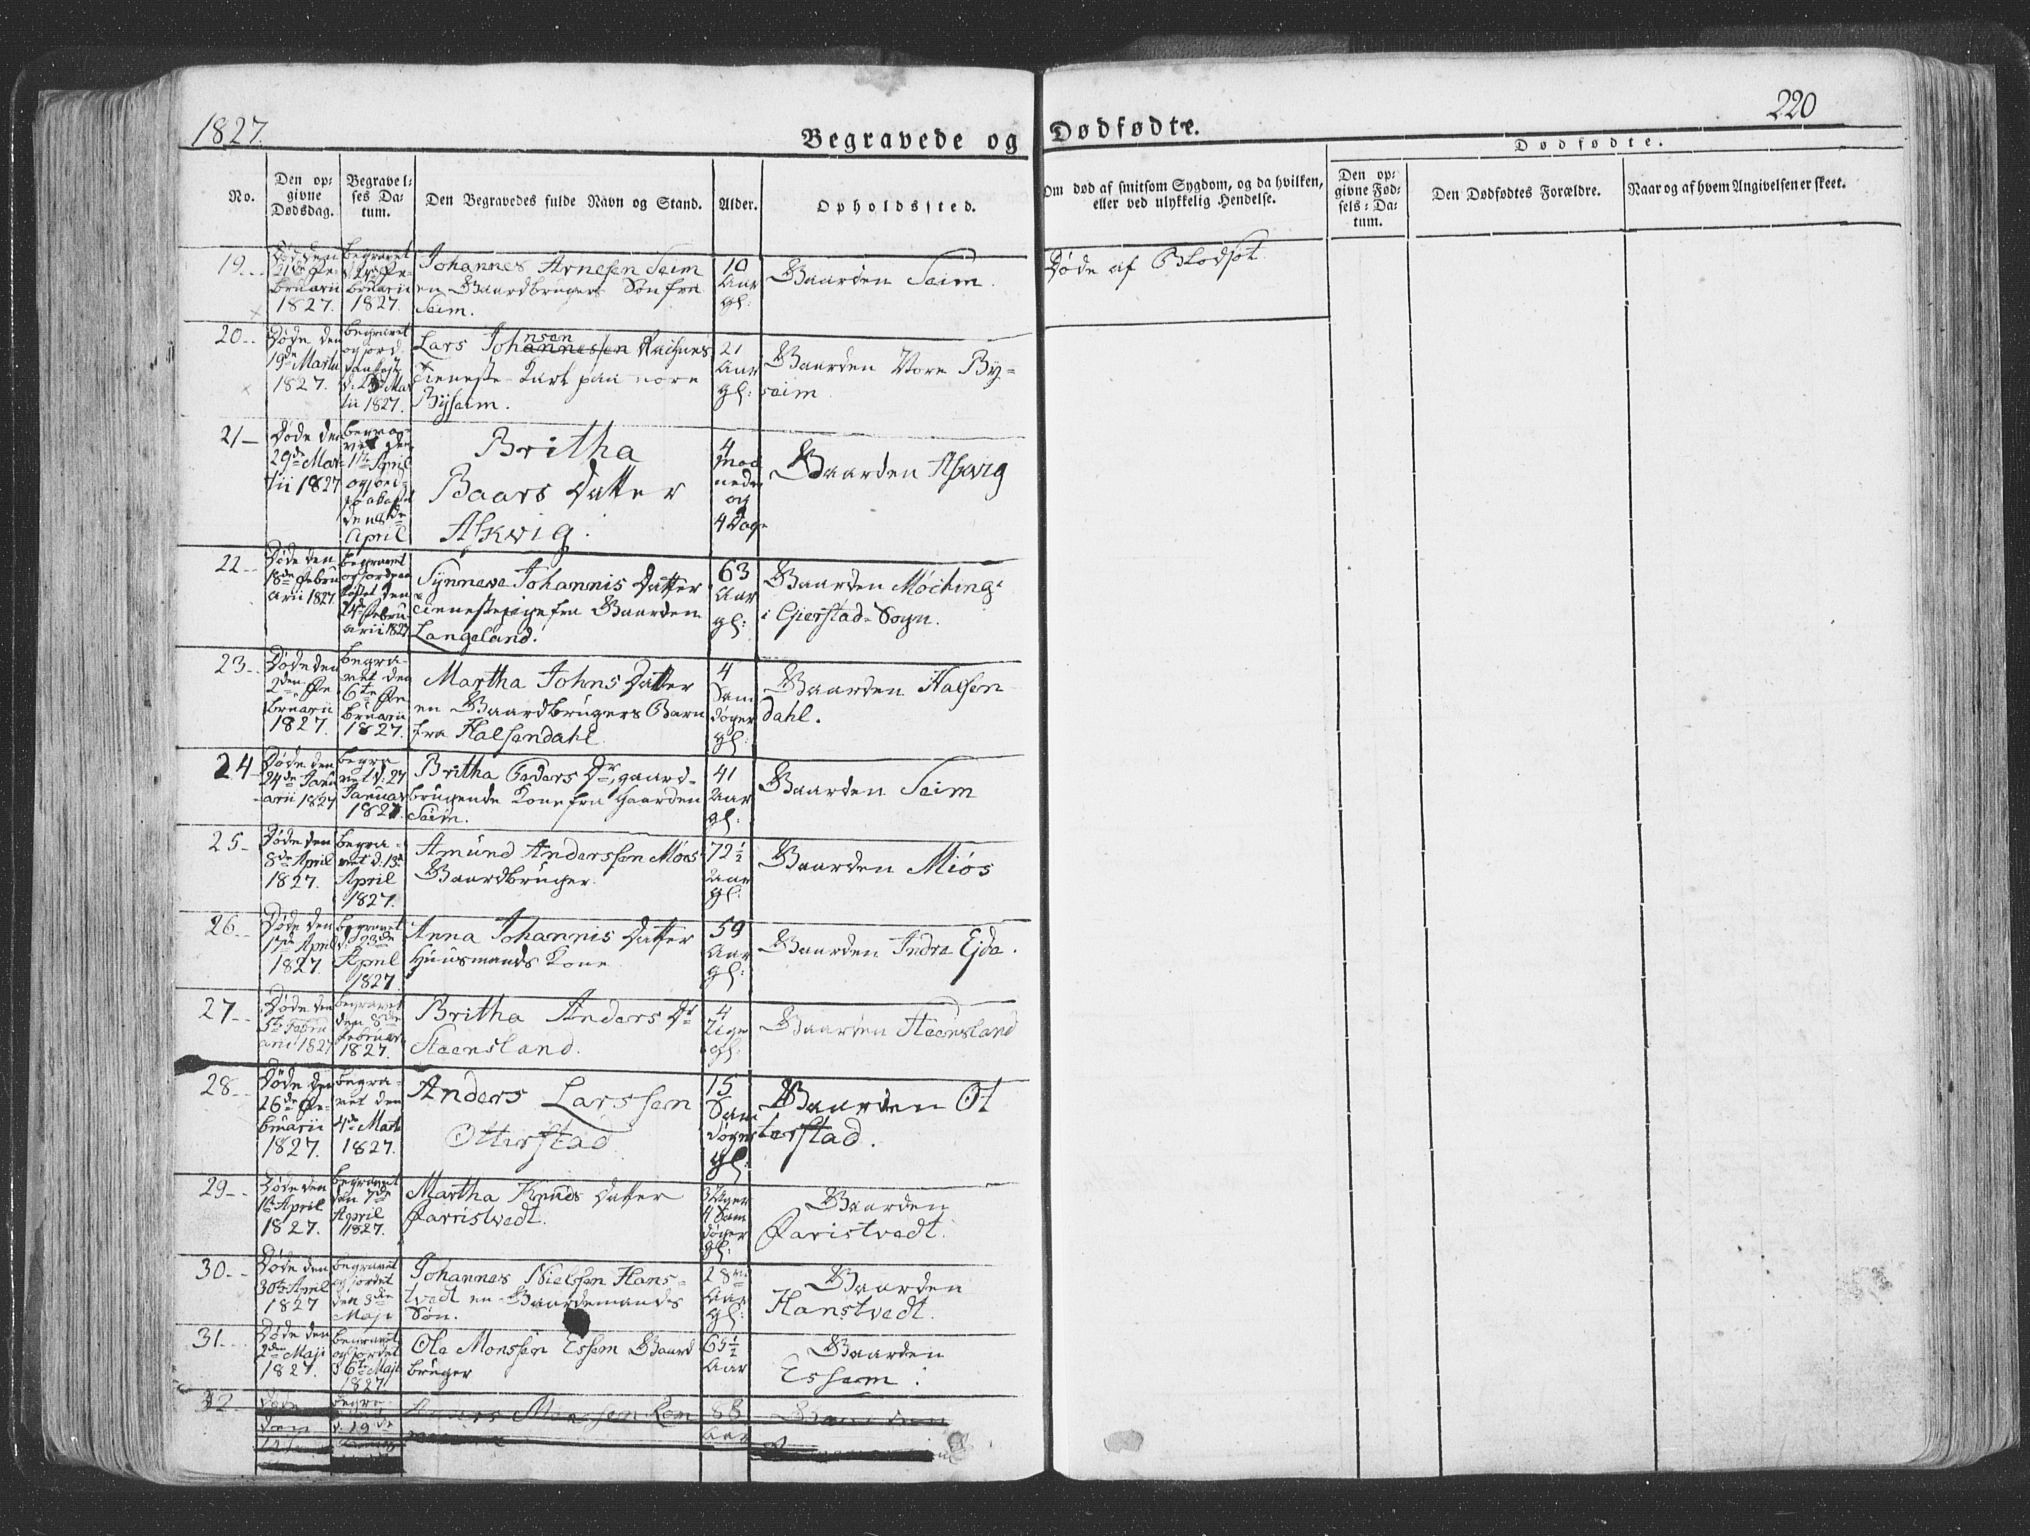 1827.
220
Begravede og Dødfødte.
Dødfødte.
No.
Den op-
givne
Dødsdag.
Begravel-
ses Da-
tum.
Den Begravedes fulde Navn og Stand.
Alder.
Opholdssted.
Om død af smitsom Sygdom, og da hvilken,
eller ved ulykkelig Hendelse.
Den op-
givne Fød-
sels-Da-
tum.
Den Dødfødtes Forældre.
Naar og af hvem Angivelsen er skeet.
19
Død den
21de Fe-
bruarii
1827.
begravet
Fe-
bruarii
1827.
Johannes Arnesen Seim
en Gaardbrugers Søn fra
Seim.
10
Aar
gl:
Gaarden Seim.
Døde af Blodsot.
20
Døde den
19de Martii
1827.
begravet
og jord-
1827.
Lars Johannessen
nsen
tieneste Karl paa nore
Byseim.
21
Aar
gl:
Gaarden Nore By-
seim
21
Døde den
29de Mar-
tii 1827
begra-
vet den
1te April
den 8de
April
Britha
Baars Datter
Askvig.
4
Maa
neder
og
4 Dage
Gaarden Askvig
22
Døde den
18de Febru
arii 1827.
begravet
og jordpaa
kastet den
24de Febru
arii 1827
Synneve Johannis Datter
tienestepige fra Gaarden
Langeland.
63
Aar
gl:
Gaarden Møching
i Gierstad Sogn.
23
Døde den
2den Fe
bruarii
1827.
begra-
vet den
6te Fe
bruarii
1827.
Martha Johns Datter
en Gaardbrugers Barn
fra Halsendahl.
4
Sam
døger
gl:
Gaarden Halsen
dahl.
24
Døde den
24de Janu
arii 1827
begra
vet d: 27
Januar
1827.
Britha Peders Dr, gaard-
brugende Kone fra Gaarden
Seim.
41
Aar
gl:
Gaarden Seim
25
Døde den
8de April
1827.
begra-
vet d. 13de
April
1827.
Amund Anderssen Miøs
Gaardbruger.
72½
Aar
gl:
Gaarden Miøs
26
Døde den
17de April
1827.
begravet
d. 23de
April
1827.
Anna Johannis Datter
Huusmands Kone
59
Aar
gl:
Gaarden Indre Ejde.
27
Døde den
5te Febru
arii 1827
begravet
den 8de
Februar
1827.
Britha Anders Dr
Steensland.
4
Uge
gl:
Gaarden Steensland
28
Døde den
26de Fe-
bruarii
1827.
begra-
vet den
4de Marti
1827.
Anders Larssen
Otterstad
15
Sam
døgns
gl:
Gaarden Ot
terstad.
29
Døde den
1te April
1827.
begravet
den 7de
April
1827.
Martha Knuds Datter
Farristvedt.
3 Uger
4 Sam
døger
gl:
Gaarden
Faristvedt.
30
Døde den
30te April
1827
begravet
og jordet
den 3die
Maji
Johannes Nielssen Hans-
tvedt en Gaardemandes
Søn.
28
Aar
gl:
Gaarden
Hanstvedt.
31
Døde den
2den Maji
1827.
begravet
og jordet
6te Maji
1827
Ole Monssen Essem Gaard
bruger
65½
Aar
Gaarden
Essem.
32
Døde
den
begra
d. 19de
Monssen
88
Aar